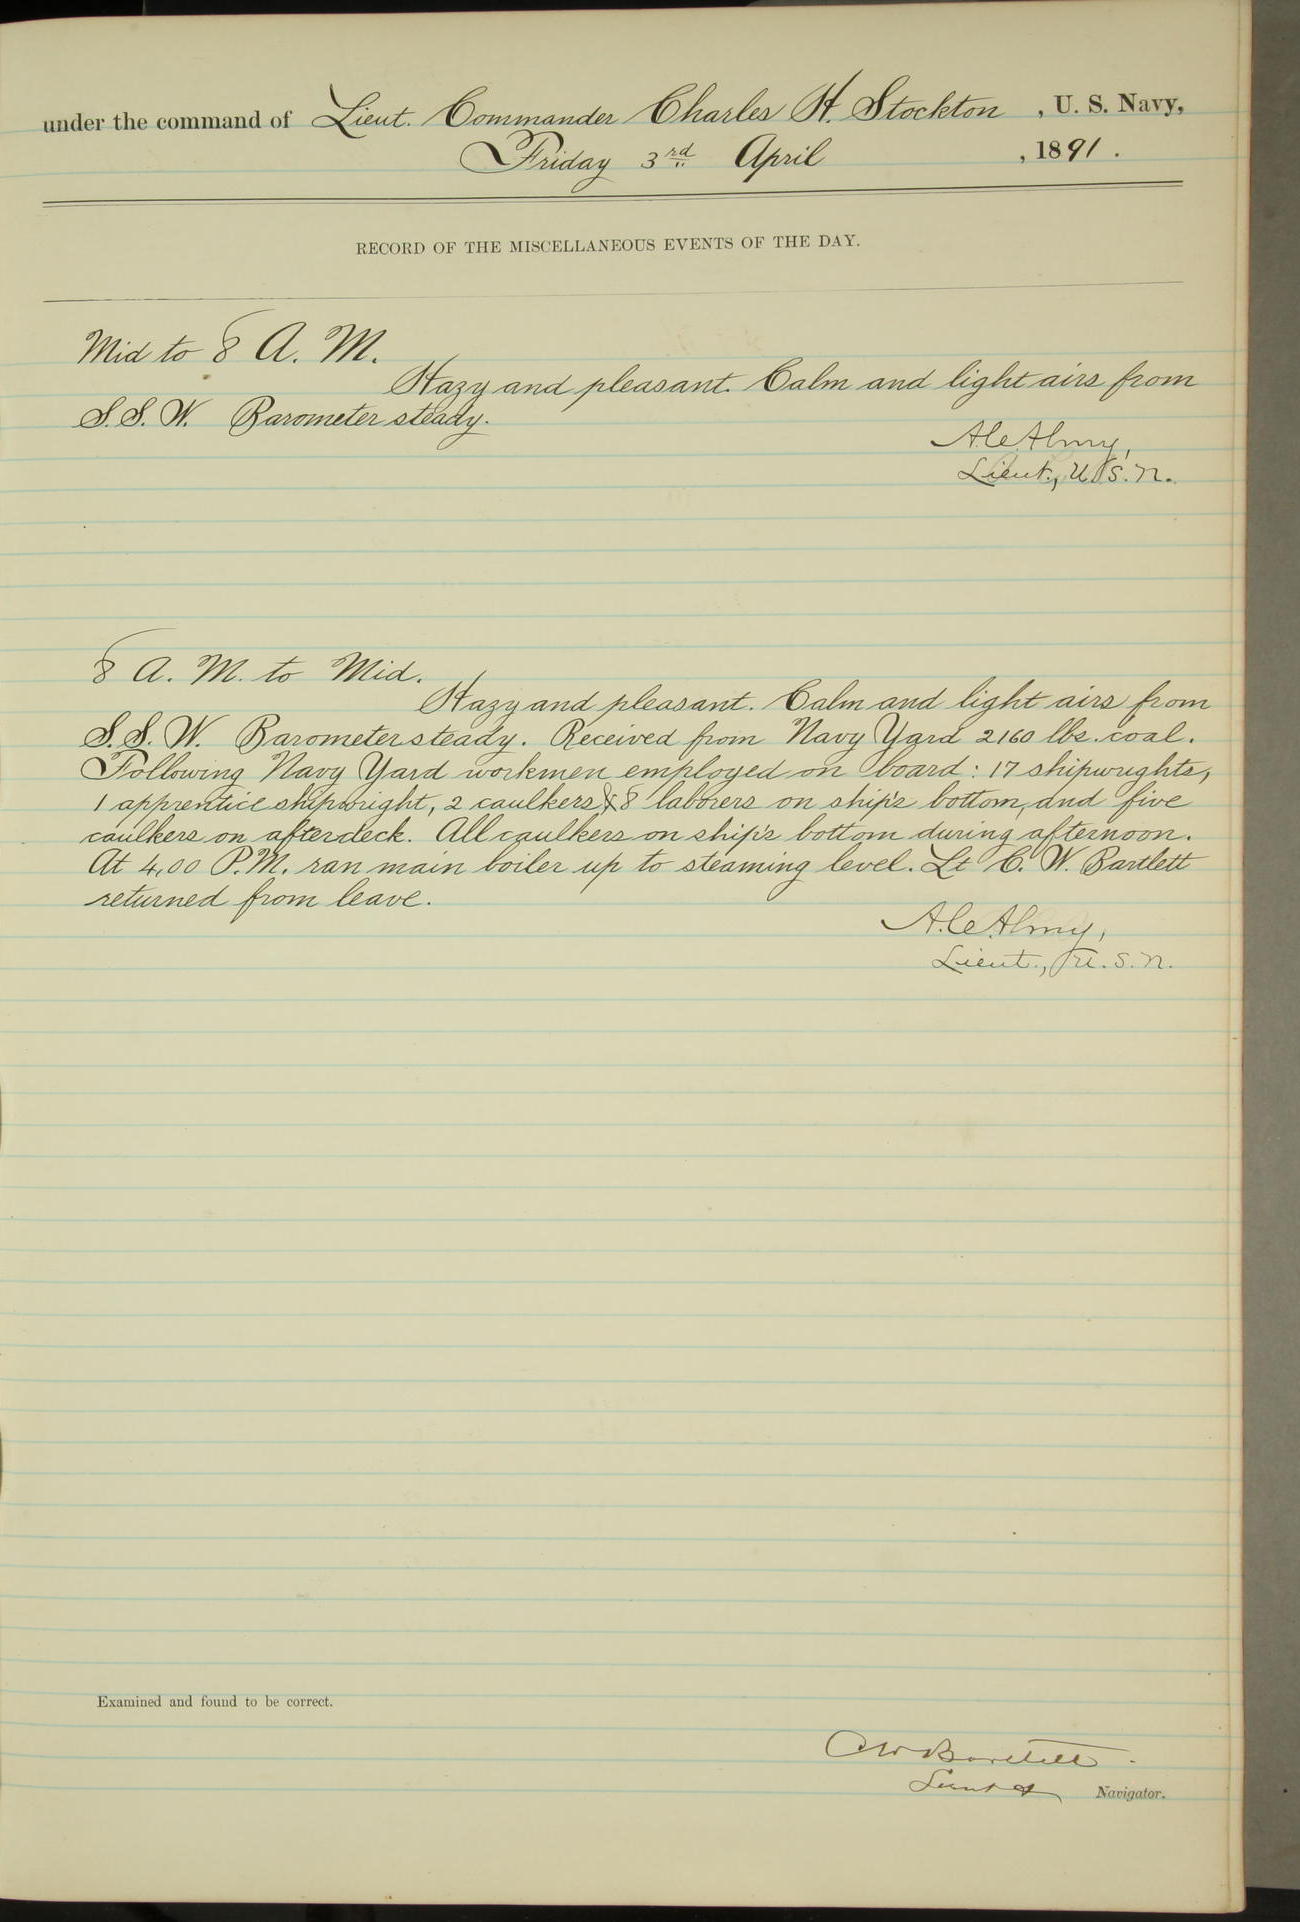 under the command of Lieut. Commander Charles H. Stockton, U. S. Navy,
Friday 3rd April, 1891.
RECORD OF THE MISCELLANEOUS EVENTS OF THE DAY.
Mid to 8 A. M.
Hazy and pleasant. Calm and light airs from
S. S. W. Barometer steady.
A.C. Almy,
Lieut., U.S.N.
8 A. M. to Mid.
Hazy and pleasant. Calm and light airs from
S. S. W. Barometer steady. Received from Navy Yard 2160 lbs. coal.
Following Navy Yard workmen employed on board: 17 shipwrights,
1 apprentice shipwright, 2 caulkers & 8 laborers on ship's bottom, and five
caulkers on afterdeck. All caulkers on ship's bottom during afternoon.
At 4.00 P.M. ran main boiler up to steaming level. Lt C. W. Bartlett
returned from leave.
A.C. Almy,
Lieut., U.S.N.
Examined and found to be correct.
C W Bartlett.
Lieut & Navigator.